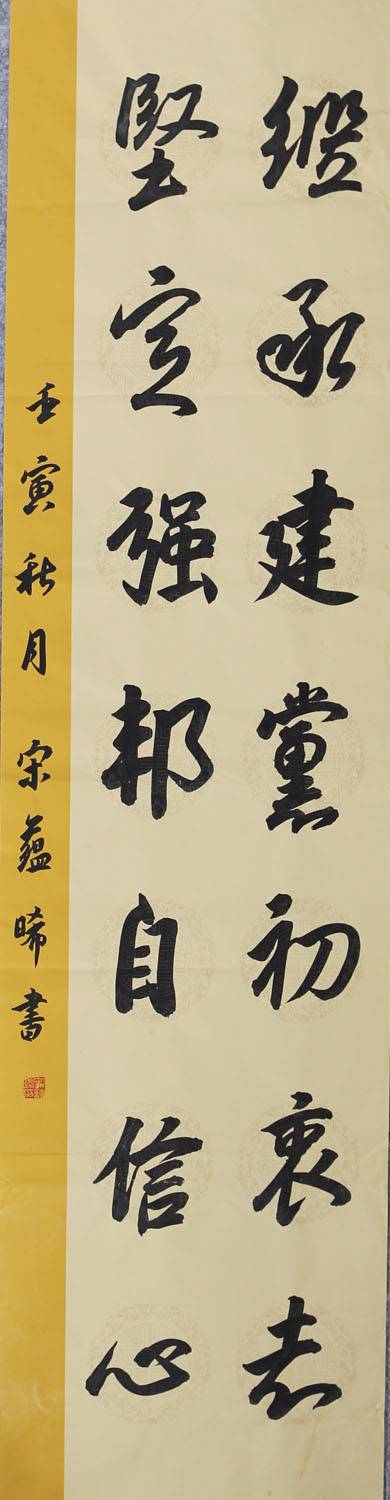 繼承建黨初衷志
堅定强邦自信心
壬寅秋月 宋蘊晞書